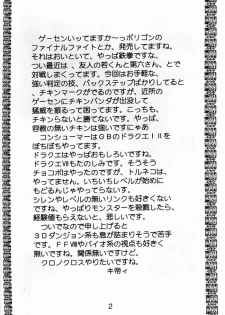 ゲーセンいってますか～っポリゴンの
ファイナルファイトとか、発売してますね。
それはおいといて、やっぱ鉄拳ですな、
つい最近は、友人の若くんと第六さん、とで
対戦しまくってます、今回はお手軽な、
強い判定の技、バックステップばかりしてると
、チキンマークがでるんですが、近所の
ゲーセンにチキンパンダが出没して
猛威を振るって困ってます、こっちも、
チキンらないと勝てないです。やっぱ、
容赦の無いチキンは強いですにゃあ
コンシューマーはGBのドラクエIIを
ぼちぼちやってます、
ドラクエはやっぱおもしろいですね。
ドラクエVIIもたのしみです。そうそう
チョコボはやったのですが、トルネコは、
やってません。いちいちレベルが始めに
もどるんじゃやってらんないす。
シレンやレベルの無いリンクも好きくない
ですね。やっぱりモンスターを殺戮したら、
経験値もらえないと、悲しいです。
ついでなので申し上げると
3Dダンジョン系も息が詰まりそうで苦手
です。FFVIIIやバイオ系の視点も好きく
無いですね。関係無いですけど。
クロノクロスやりたいですね。
キ帝ィ
2